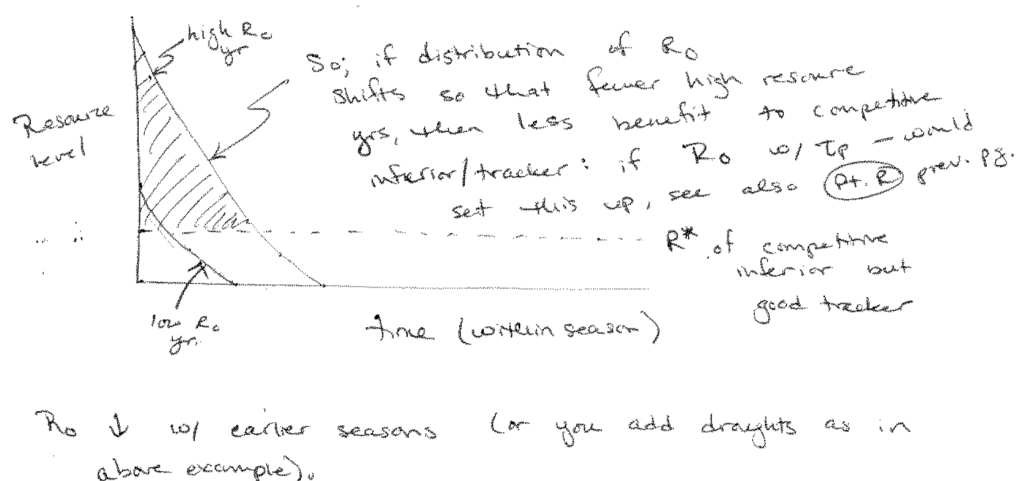 high Ro
yr
Resource
level
So; if distribution of Ro
shifts so that fewer high resource
yrs, then less benefit to competitive
inferior/tracker: if Ro w/ τp – would
set this up, see also Pt. R prev. pg.
R* of competitive
inferior but
good tracker
low Ro
yr.
time (within season)
Ro ↓ w/ earlier seasons (or you add draughts as in
above example).